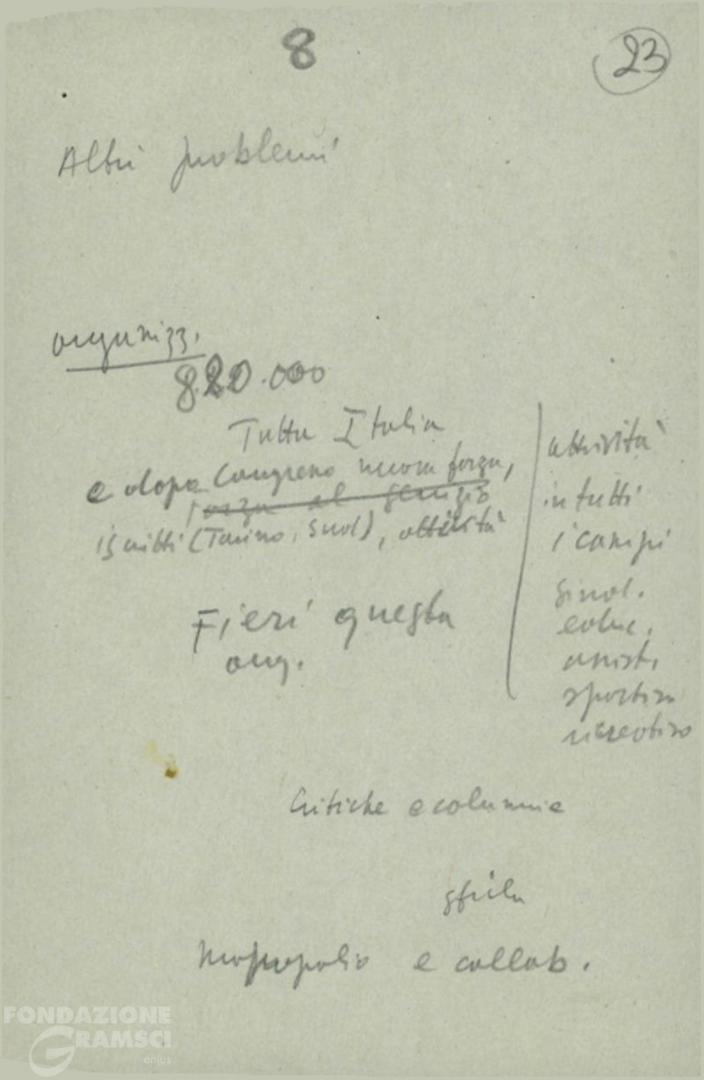 8
23
Altri problemi
organizz.
820.000
Tutta Italia
e dopo Congresso nuova forza,
forza al servizio
iscritti (Torino, Sud), attività
Fieri questa
org.
attività
in tutti
i campi
sind.
educ.
assist.
sportivo
ricreativo
Critiche e calunnie
Monopolio e collab.
FONDAZIONE
GRAMSCI
onlus